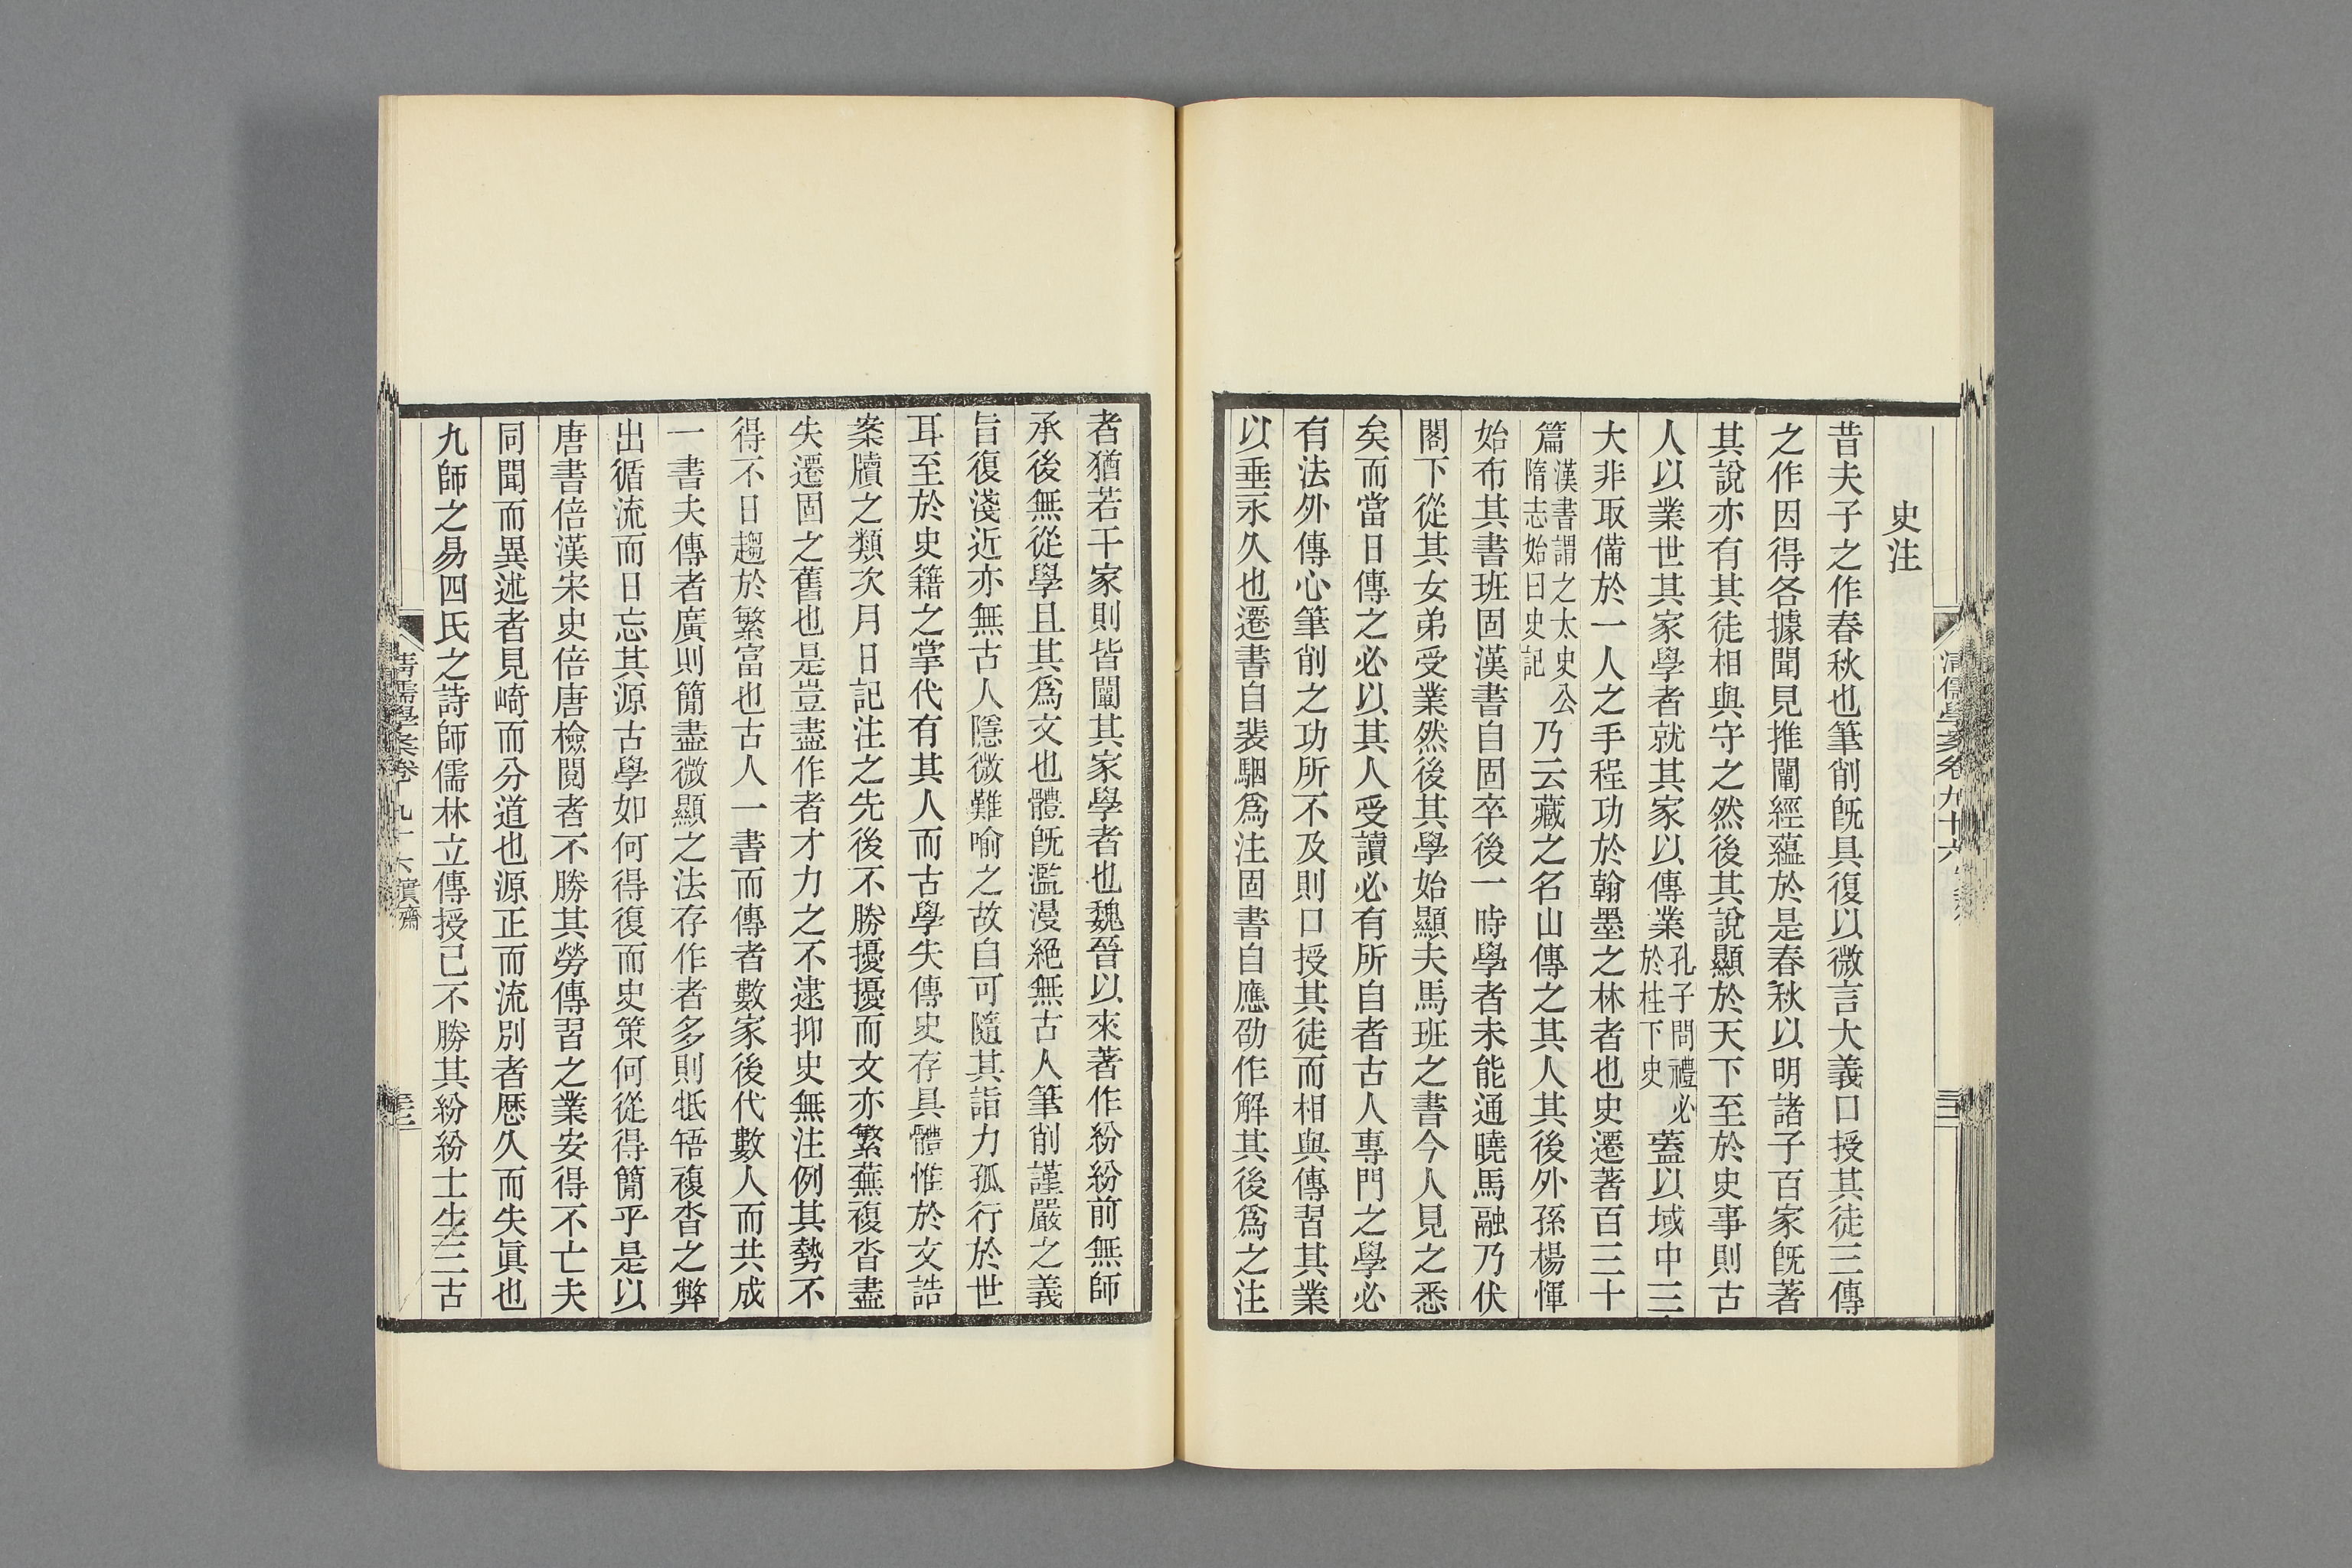 史注
昔夫子之作春秋也筆削旣具復以微言大義口授其徒三傳
之作因得各據聞見推闡經蘊於是春秋以明諸子百家旣著
其說亦有其徒相與守之然後其說顯於天下至於史事則古
人以業世其家學者就其家以傳業孔子問禮必於柱下史蓋以域中三
大非取備於一人之手程功於翰墨之林者也史遷著百三十
篇漢書謂之太史公隋志始曰史記乃云藏之名山傳之其人其後外孫楊惲
始布其書班固漢書自固卒後一時學者未能通曉馬融乃伏
閣下從其女弟受業然後其學始顯夫馬班之書今人見之悉
矣而當日傳之必以其人受讀必有所自者古人專門之學必
有法外傳心筆削之功所不及則口授其徒而相與傳習其業
以垂永久也遷書自裴駰爲注固書自應劭作解其後爲之注
者猶若干家則皆闡其家學者也魏晉以來著作紛紛前無師
承後無從學且其爲文也體旣濫漫絕無古人筆削謹嚴之義
旨復淺近亦無古人隱微難喻之故自可隨其詣力孤行於世
耳至於史籍之掌代有其人而古學失傳史存具體惟於文誥
案牘之類次月日記注之先後不勝擾擾而文亦繁蕪複沓盡
失遷固之舊也是豈盡作者才力之不逮抑史無注例其勢不
得不日趨於繁富也古人一書而傳者數家後代數人而共成
一書夫傳者廣則簡盡微顯之法存作者多則牴牾複沓之弊
出循流而日忘其源古學如何得復而史策何從得簡乎是以
唐書倍漢宋史倍唐檢閱者不勝其勞傳習之業安得不亡夫
同聞而異述者見崎而分道也源正而流別者歷久而失眞也
九師之易四氏之詩師儒林立傳授已不勝其紛紛士生三古
清儒學案卷九十六實齋